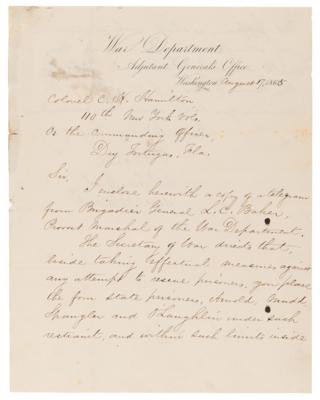 War Department
Adjutant Generals Office
Washington August 17, 1865
Colonel C. H. Hamilton
110th New York Vols.
Or the Commanding Officer,
Dry Tortugas, Fla.
Sir,
I enclose herewith a copy of a telegram
from Brigadier General L. C. Baker,
Provost Marshal of the War Department.
The Secretary of War directs that,
beside taking effectual measures against
any attempt to rescue prisoners, you place
the four state prisoners, Arnold, Mudd
Spangler and O'Laughlin under such
restraint, and within such limits inside